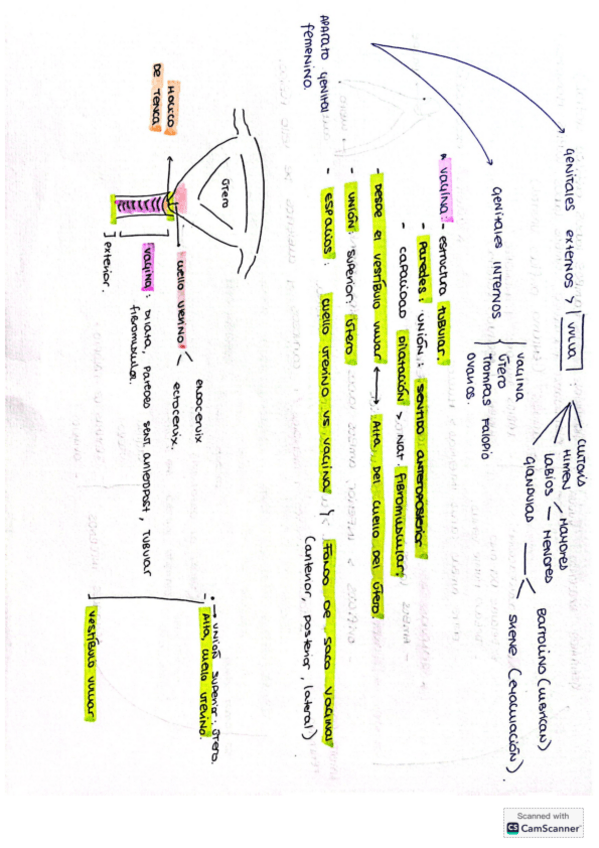 APARATO GENITAL
FEMENINO.
GENITALES EXTERNOS > VULVA :
CLITORIS
HIMEN
LABIOS < MAYORES
MENORES
GLANDULAS < BARTOLINO (LUBRICAN)
SKENE (EYACULACIÓN).
GENITALES INTERNOS
VAGINA
ÚTERO
TROMPAS FALOPIO
OVARIOS.
VAGINA: - ESTRUCTURA TUBULAR.
- PAREDES: UNIÓN: SENTIDO ANTEROPOSTERIOR
- CAPACIDAD DILATACIÓN > NAT. FIBROMUSCULAR
- DESDE EL VESTÍBULO VULVAR ↔ ALTA DEL CUELLO DEL ÚTERO.
- UNIÓN: SUPERIOR ÚTERO
- ESPACIOS: CUELLO UTERINO VS VAGINA y FONDO DE SACO VAGINAL
(anterior, posterior, lateral)
ÚTERO
HOCICO
DE TENCA
CUELLO UTERINO < ENDOCERVIX
ECTOCERVIX.
VAGINA: PAREDES SENT. ANTEROPOST, TUBULAR
FIBROMUSCULAR.
] EXTERIOR.
UNIÓN SUPERIOR: ÚTERO.
- Alta, CUELLO UTERINO.
VESTÍBULO VULVAR
Scanned with
CS CamScanner